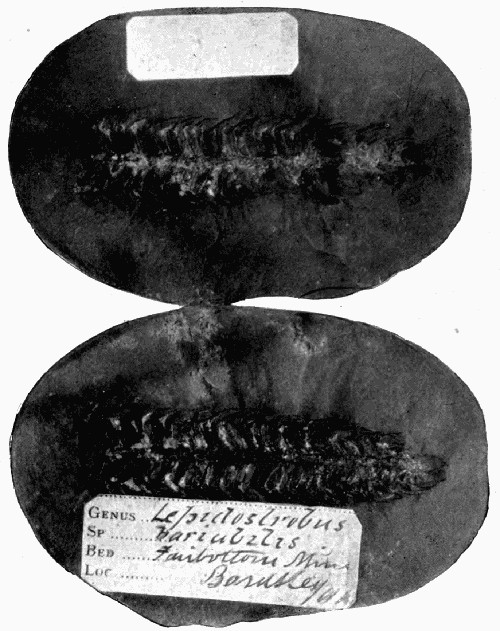 GENUS .. Lepidostrobus
SP ........ Variabilis
BED ...... Fairbottom Mine
LOC .........
Bardsley